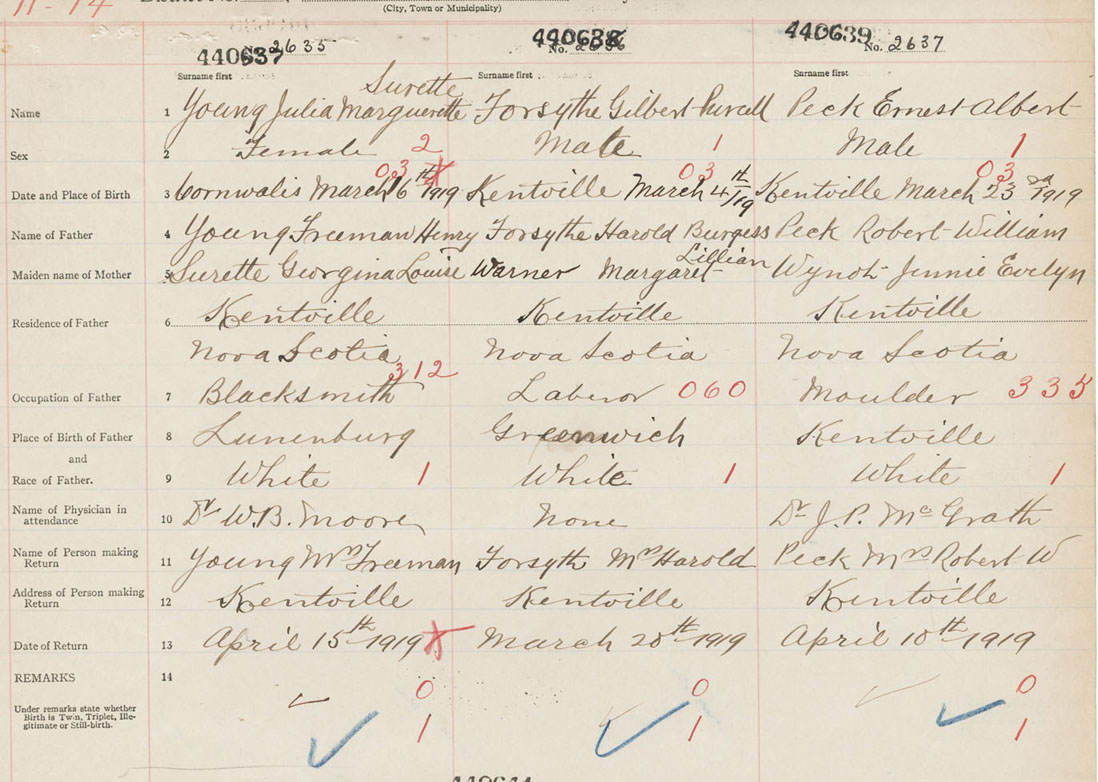 (City, Town or Municipality)
440637 2635 440638 No. 440639 No. 2637
Surname first Surname first Surname first
Surette
Name 1 Young Julia Marguerette Forsythe Gilbert Purcell Peck Ernest Albert
Sex 2 Female 2 Male 1 Male 1
03 03 03
Date and Place of Birth 3 Cornwalis March 16th 1919 Kentville March 4th/19 Kentville March 23rd 1919
Name of Father 4 Young Freeman Henry Forsythe Harold Burgess Peck Robert William
Lillian
Maiden name of Mother 5 Surette Georgina Louise Warner Margaret Wynot Jennie Evelyn
Residence of Father 6 Kentville Kentville Kentville
Nova Scotia Nova Scotia Nova Scotia
312
Occupation of Father 7 Blacksmith Laberor 060 Moulder 335
Place of Birth of Father 8 Lunenburg Greenwich Kentville
and
Race of Father. 9 White 1 White 1 White 1
Name of Physician in attendance 10 Dr W.B. Moore None Dr J.P. McGrath
Name of Person making Return 11 Young Mrs Freeman Forsyth Mrs Harold Peck Mrs Robert W
Address of Person making Return 12 Kentville Kentville Kentville
Date of Return 13 April 15th 1919 March 20th 1919 April 10th 1919
REMARKS 14
0 0 0
Under remarks state whether Birth is Twin, Triplet, Ille-
gitimate or Still-birth.
1 1 1